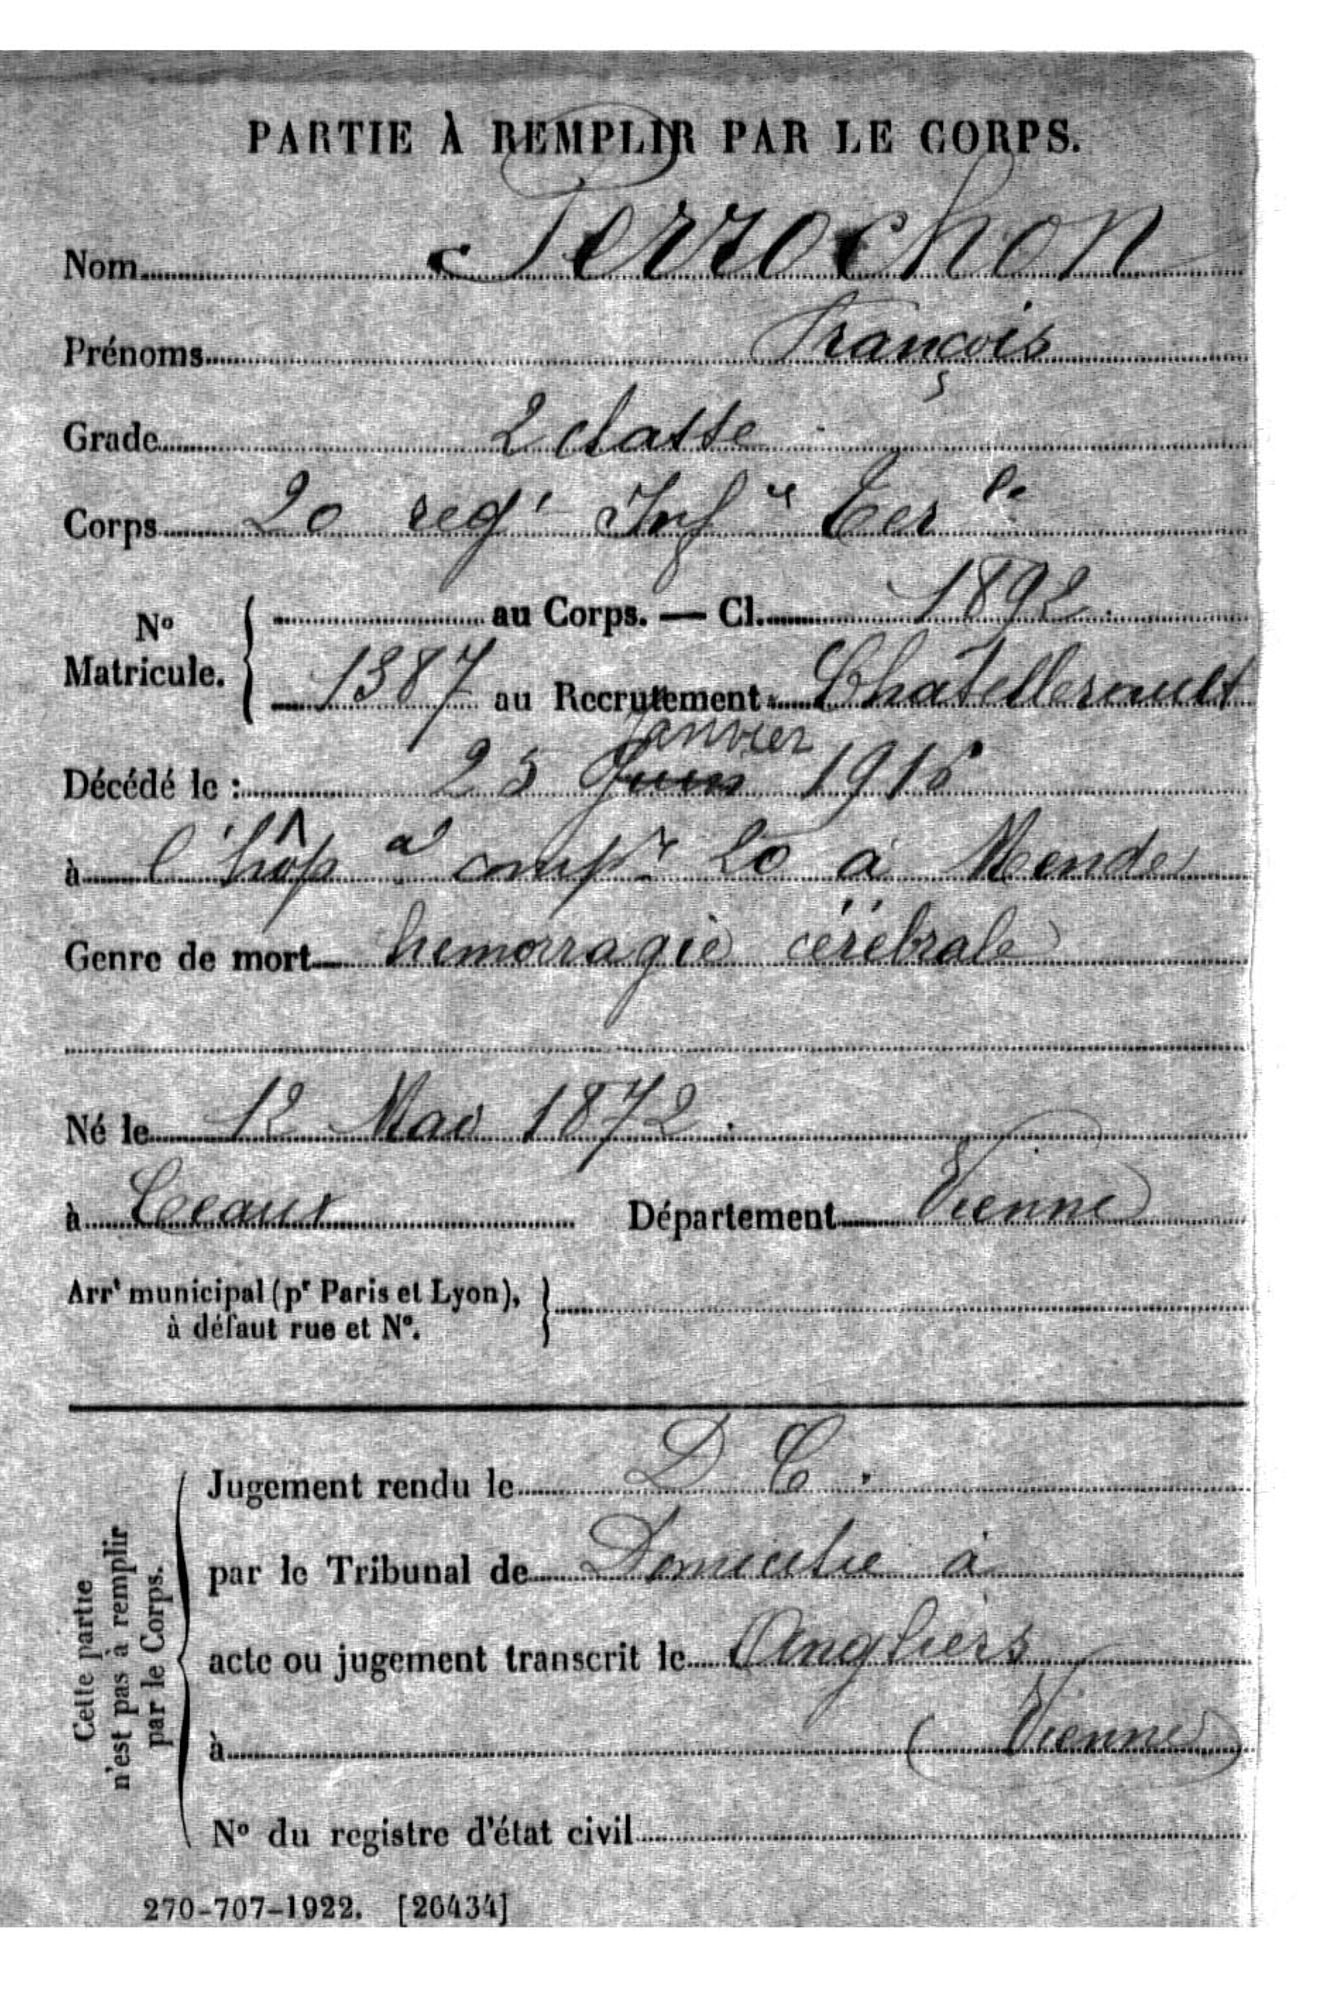 PARTIE À REMPLIR PAR LE CORPS.
Nom Perrochon
Prénoms François
Grade 2 classe
Corps 20 reg<sup>t</sup> Inf<sup>ie</sup> Ter<sup>le</sup>
N° Matricule. { au Corps. — Cl. 1892
1387 au Recrutement Chatellerault
Janvier
Décédé le : 25 Juin 1916
à l'hôp comp<sup>re</sup> 20 à Mende
Genre de mort hémorragie cérébrale
Né le 12 Mai 1872.
à Ceaux Département Vienne
Arr<sup>t</sup> municipal (p<sup>r</sup> Paris et Lyon),
à défaut rue et N°.
Cette partie n'est pas à remplir par le Corps.
Jugement rendu le D C.
par le Tribunal de Domicilié à
acte ou jugement transcrit le Angliers
à (Vienne)
N° du registre d'état civil
270-707-1922. [26434]